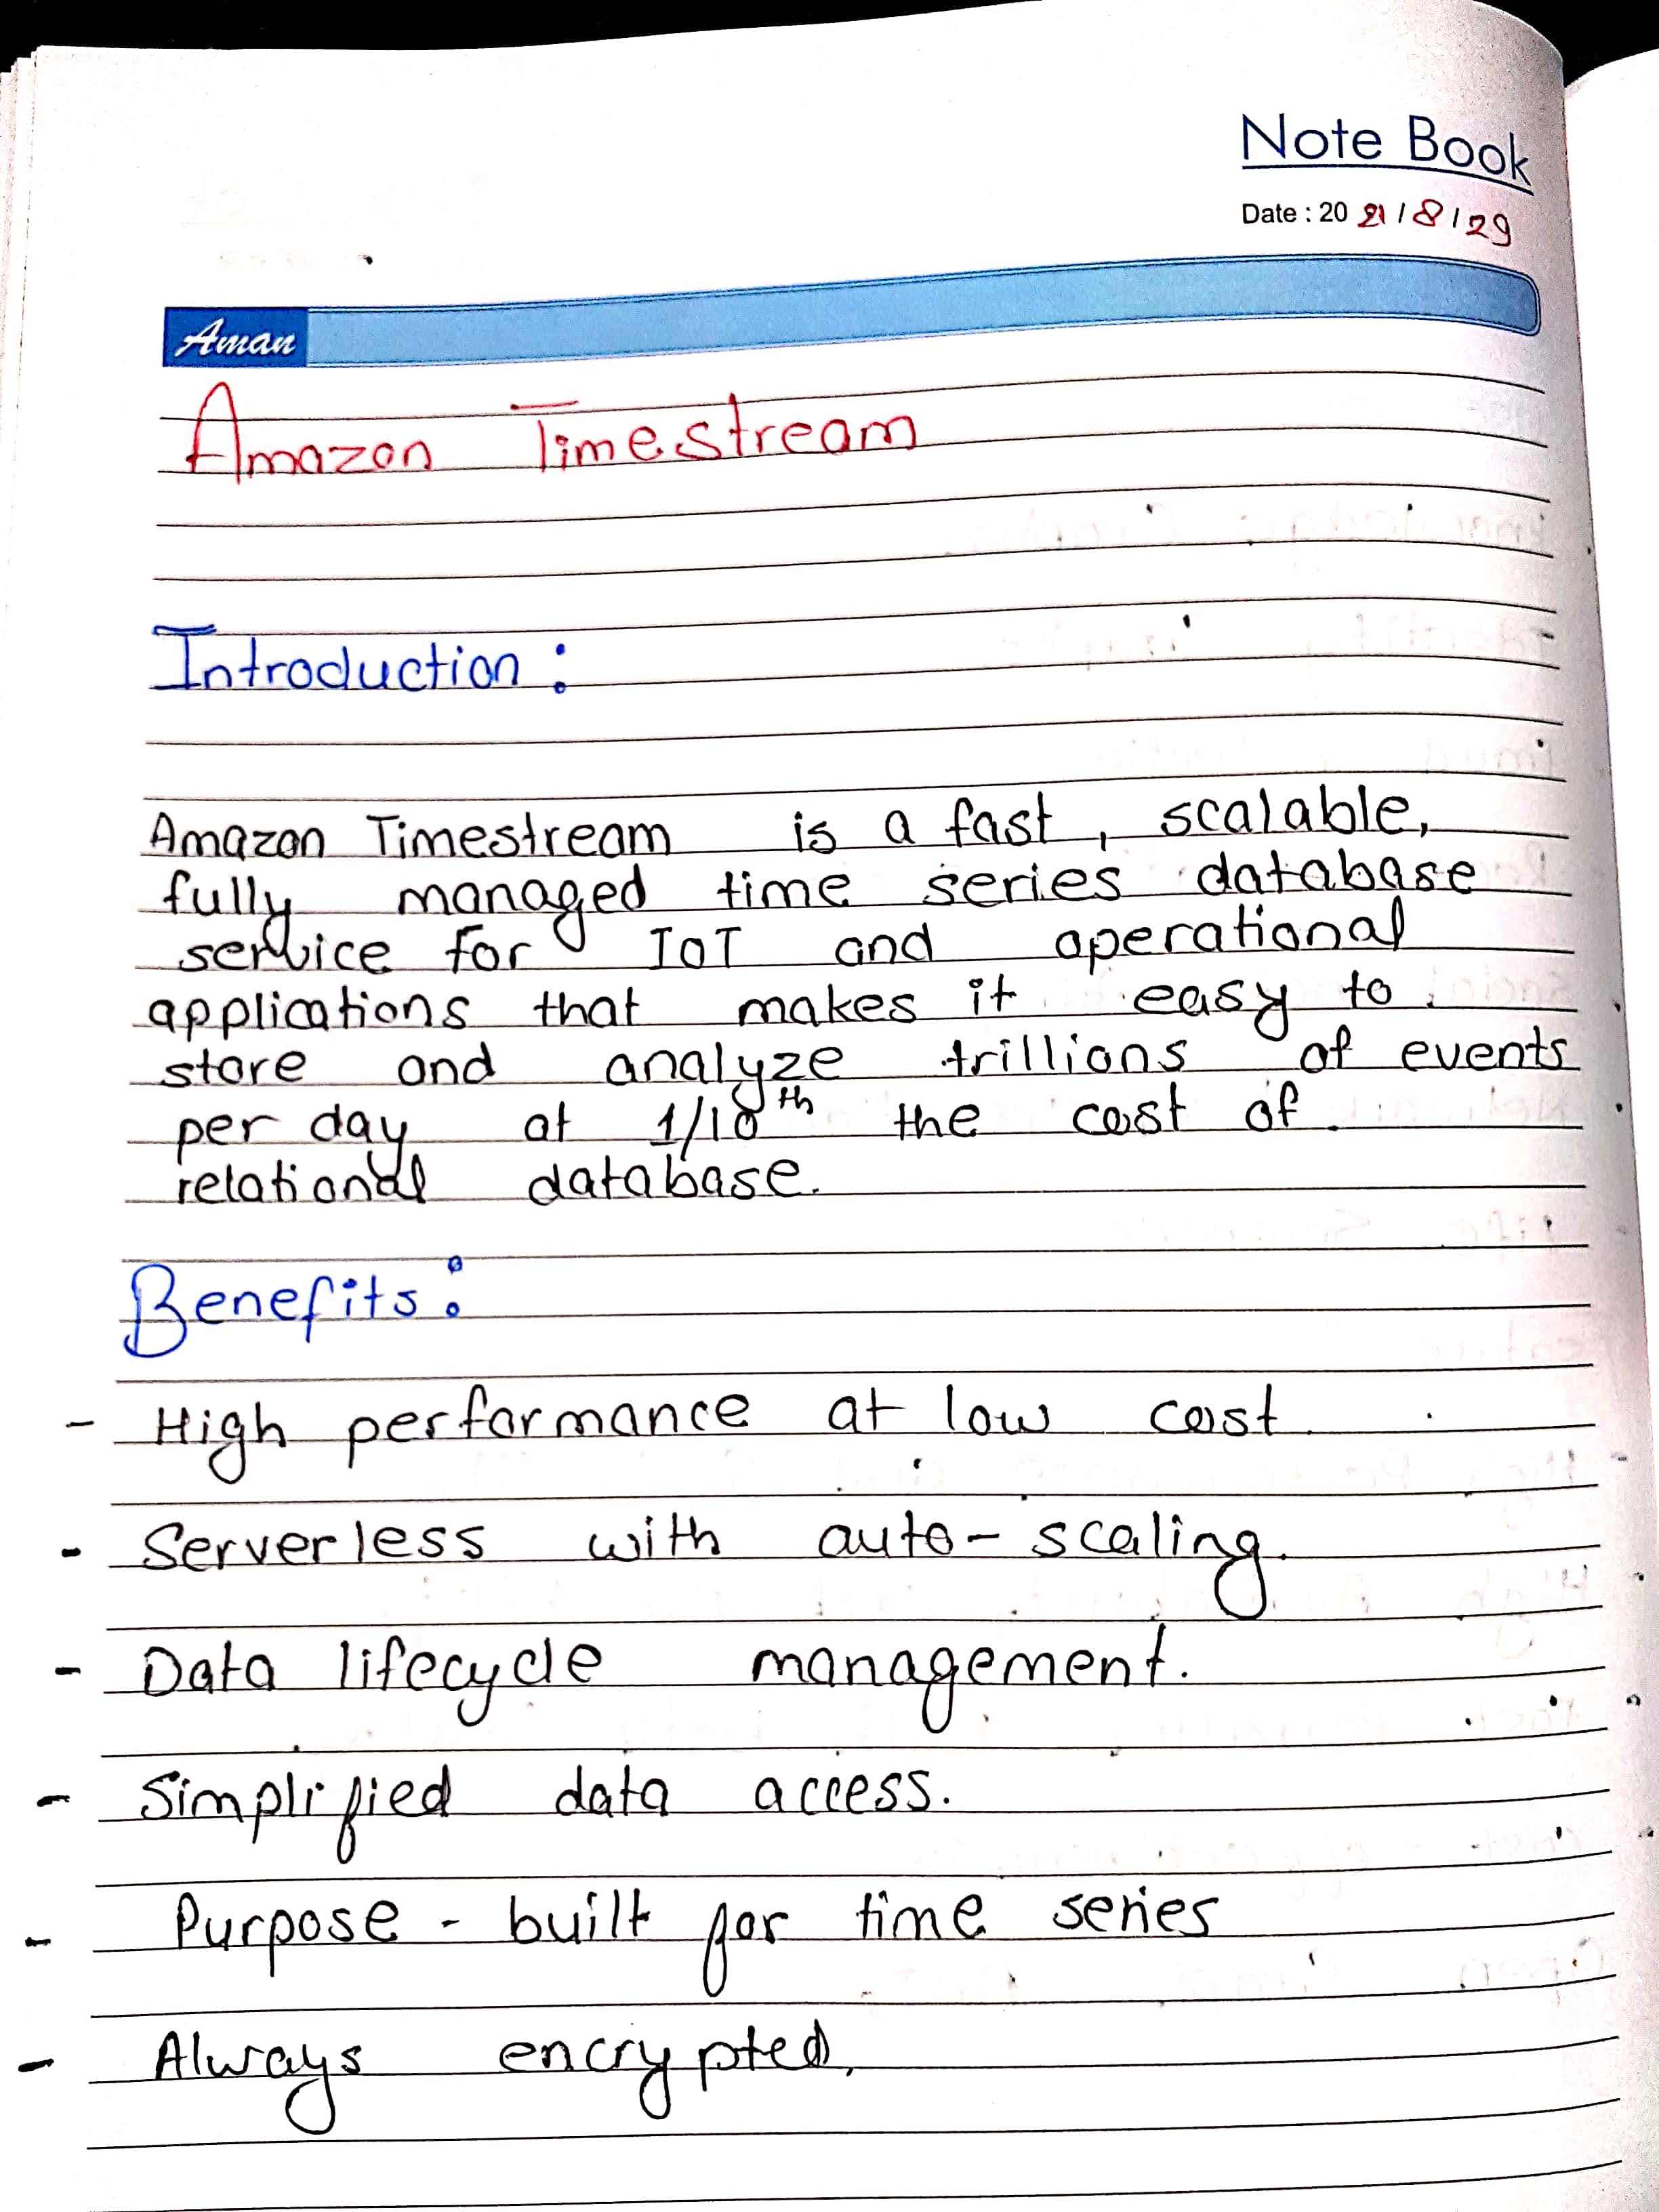 Note Book
Date : 20 21/8/29
Aman
Amazon Timestream
Introduction :
Amazon Timestream is a fast, scalable,
fully managed time series database
service for IoT and operational
applications that makes it easy to
store and analyze trillions of events
per day at 1/10th the cost of
relational database.
Benefits :
- High performance at low cost.
- Serverless with auto-scaling.
- Data lifecycle management.
- Simplified data access.
- Purpose-built for time series
- Always encrypted.